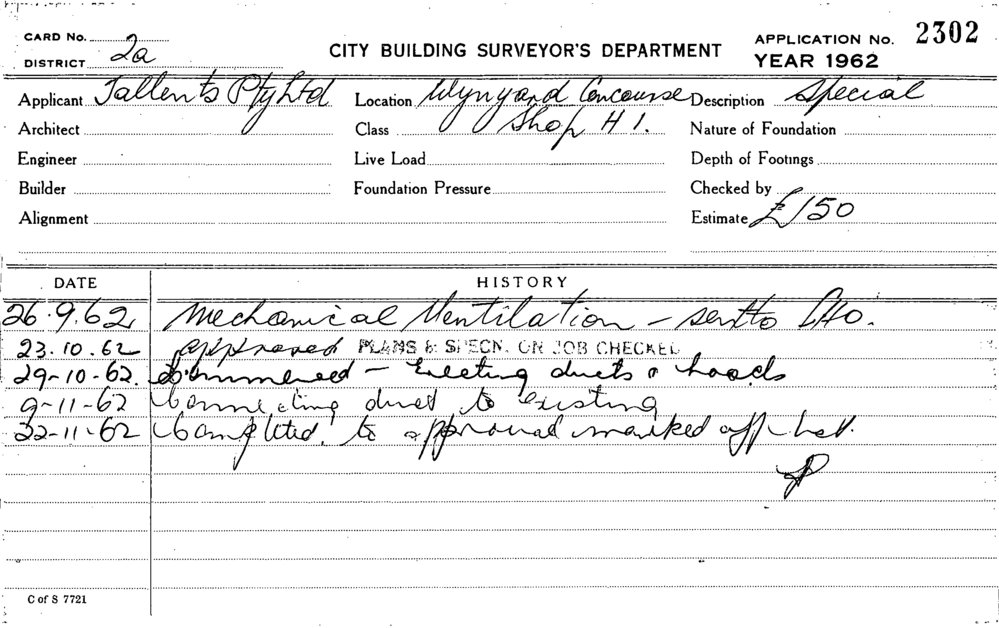 CARD No.
DISTRICT 2a
CITY BUILDING SURVEYOR'S DEPARTMENT
APPLICATION No. 2302
YEAR 1962
Applicant Tallents Pty Ltd Location Wynyard Concourse Description Special
Architect Class Shop H 1. Nature of Foundation
Engineer Live Load Depth of Footings
Builder Foundation Pressure Checked by
Alignment Estimate £150
DATE HISTORY
26.9.62 Mechanical Ventilation – sent to
23.10.62 approved PLANS & SPECN. ON JOB CHECKED
29-10-62. Commenced – Erecting ducts & hoods
9-11-62 Connecting duct to existing
22-11-62 Completed to approval marked off
C of S 7721